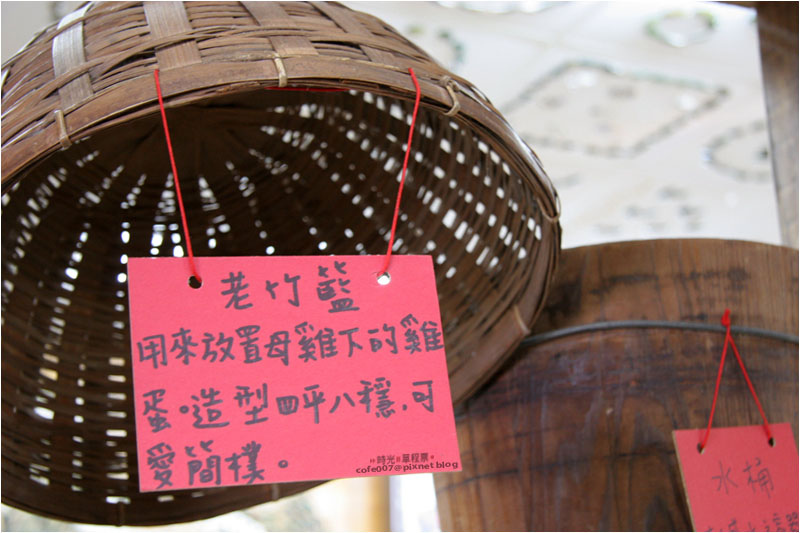 老竹籃
用來放置母雞下的雞
蛋。造型四平八穩，可
愛簡樸。
"時光"單程票"
cofe007@pixnet blog
水桶